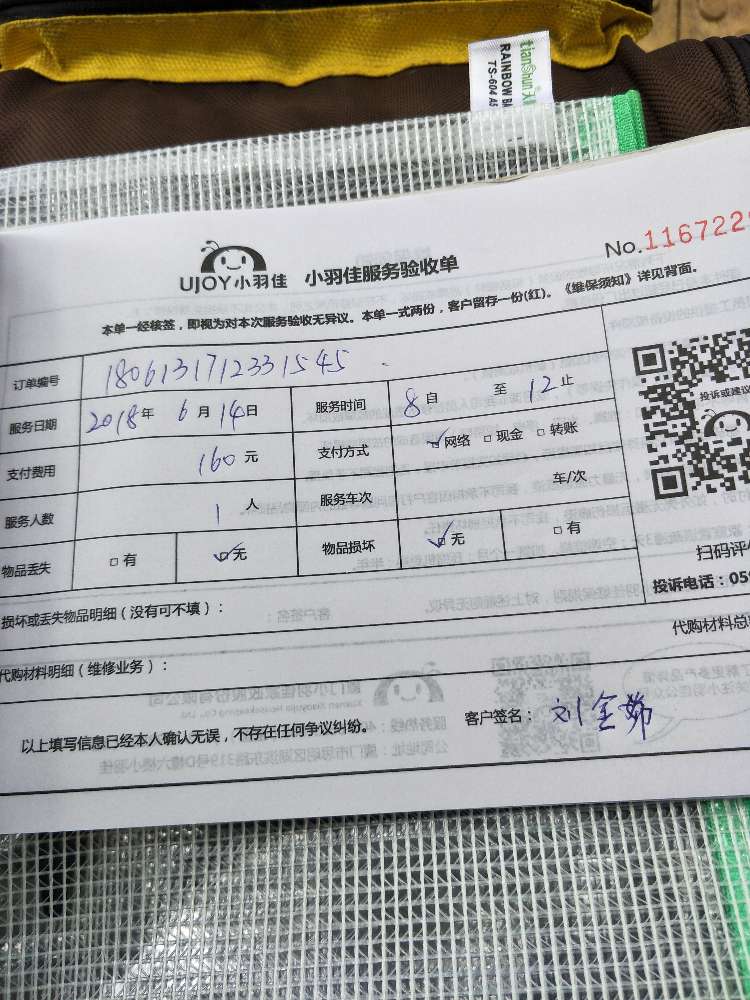 tianshun天
RAINBOW BA
TS-604 A5
UJOY小羽佳 小羽佳服务验收单
No.116722
本单一经核签，即视为对本次服务验收无异议。本单一式两份，客户留存一份(红)。《维保须知》详见背面。
订单编号 1806131712331545
服务日期 2018年 6月 14日 服务时间 8自 至 12止
支付费用 160元 支付方式 ☑网络 □现金 □转账
服务人数 1人 服务车次 车/次
物品丢失 □有 ☑无 物品损坏 ☑无 □有
投诉或建议
扫码评
投诉电话：059
损坏或丢失物品明细（没有可不填）：
代购材料总
代购材料明细（维修业务）：
以上填写信息已经本人确认无误，不存在任何争议纠纷。 客户签名：刘金